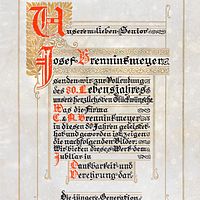 Unserem lieben Senior
Josef Brenninkmeyer
senden wir zur Vollendung
des 80. Lebensjahres
unsere herzlichsten Glückwünsche
Was die Firma
C. & A. Brenninkmeyer
in diesen 80 Jahren geleistet
hat und geworden ist, zeigen
die nachfolgenden Bilder.
Wir bieten dieses Werk dem
Jubilar in
Dankbarkeit und
Verehrung dar.
Die jüngere Generation